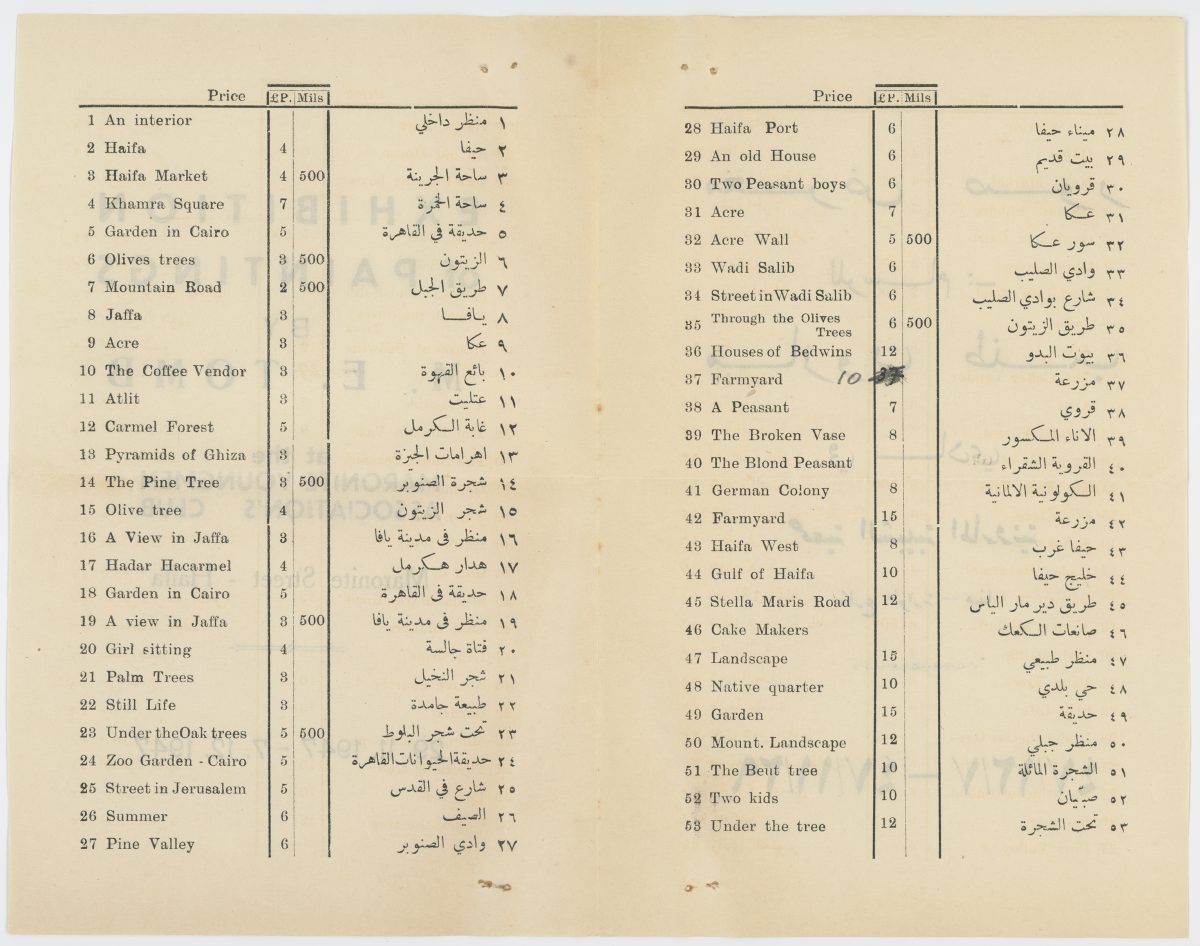 Price £P. Mils
1 An interior منظر داخلي ١
2 Haifa 4 حيفا ٢
3 Haifa Market 4 500 ساحة الجرينة ٣
4 Khamra Square 7 ساحة الحمرة ٤
5 Garden in Cairo 5 حديقة في القاهرة ٥
6 Olives trees 3 500 الزيتون ٦
7 Mountain Road 2 500 طريق الجبل ٧
8 Jaffa 3 يـافــا ٨
9 Acre 3 عكا ٩
10 The Coffee Vendor 3 بائع القهوة ١٠
11 Atlit 3 عتليت ١١
12 Carmel Forest 5 غابة الكرمل ١٢
13 Pyramids of Ghiza 3 اهرامات الجيزة ١٣
14 The Pine Tree 3 500 شجرة الصنوبر ١٤
15 Olive tree 4 شجر الزيتون ١٥
16 A View in Jaffa 3 منظر فى مدينة يافا ١٦
17 Hadar Hacarmel 4 هدار هكرمل ١٧
18 Garden in Cairo 5 حديقة فى القاهرة ١٨
19 A view in Jaffa 3 500 منظر فى مدينة يافا ١٩
20 Girl sitting 4 فتاة جالسة ٢٠
21 Palm Trees 3 شجر النخيل ٢١
22 Still Life 3 طبيعة جامدة ٢٢
23 Under the Oak trees 5 500 تحت شجر البلوط ٢٣
24 Zoo Garden - Cairo 5 حديقة الحيوانات القاهرة ٢٤
25 Street in Jerusalem 5 شارع في القدس ٢٥
26 Summer 6 الصيف ٢٦
27 Pine Valley 6 وادي الصنوبر ٢٧
Price £P. Mils
28 Haifa Port 6 ميناء حيفا ٢٨
29 An old House 6 بيت قديم ٢٩
30 Two Peasant boys 6 قرويان ٣٠
31 Acre 7 عـكا ٣١
32 Acre Wall 5 500 سور عـكا ٣٢
33 Wadi Salib 6 وادي الصليب ٣٣
34 Street in Wadi Salib 6 شارع بوادي الصليب ٣٤
35 Through the Olives
Trees 6 500 طريق الزيتون ٣٥
36 Houses of Bedwins 12 بيوت البدو ٣٦
37 Farmyard 10 مزرعة ٣٧
38 A Peasant 7 قروي ٣٨
39 The Broken Vase 8 الاناء المكسور ٣٩
40 The Blond Peasant القروية الشقراء ٤٠
41 German Colony 8 الكولونية الالمانية ٤١
42 Farmyard 15 مزرعة ٤٢
43 Haifa West 8 حيفا غرب ٤٣
44 Gulf of Haifa 10 خليج حيفا ٤٤
45 Stella Maris Road 12 طريق دير مار الياس ٤٥
46 Cake Makers صانعات الكعك ٤٦
47 Landscape 15 منظر طبيعي ٤٧
48 Native quarter 10 حي بلدي ٤٨
49 Garden 15 حديقة ٤٩
50 Mount. Landscape 12 منظر جبلي ٥٠
51 The Beut tree 10 الشجرة المائلة ٥١
52 Two kids 10 صبيّان ٥٢
53 Under the tree 12 تحت الشجرة ٥٣